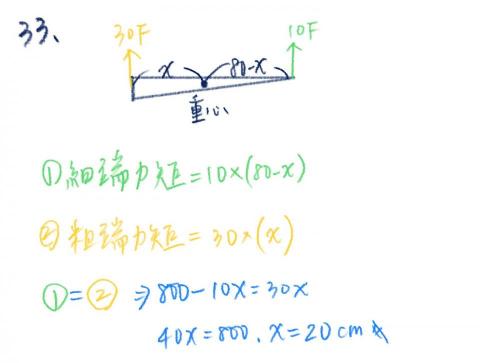 33、
30F
10F
x
80-x
重心
①細端力矩=10×(80-x)
②粗端力矩=30×(x)
①=② ⇒ 800-10x=30x
40x=800、x=20cm